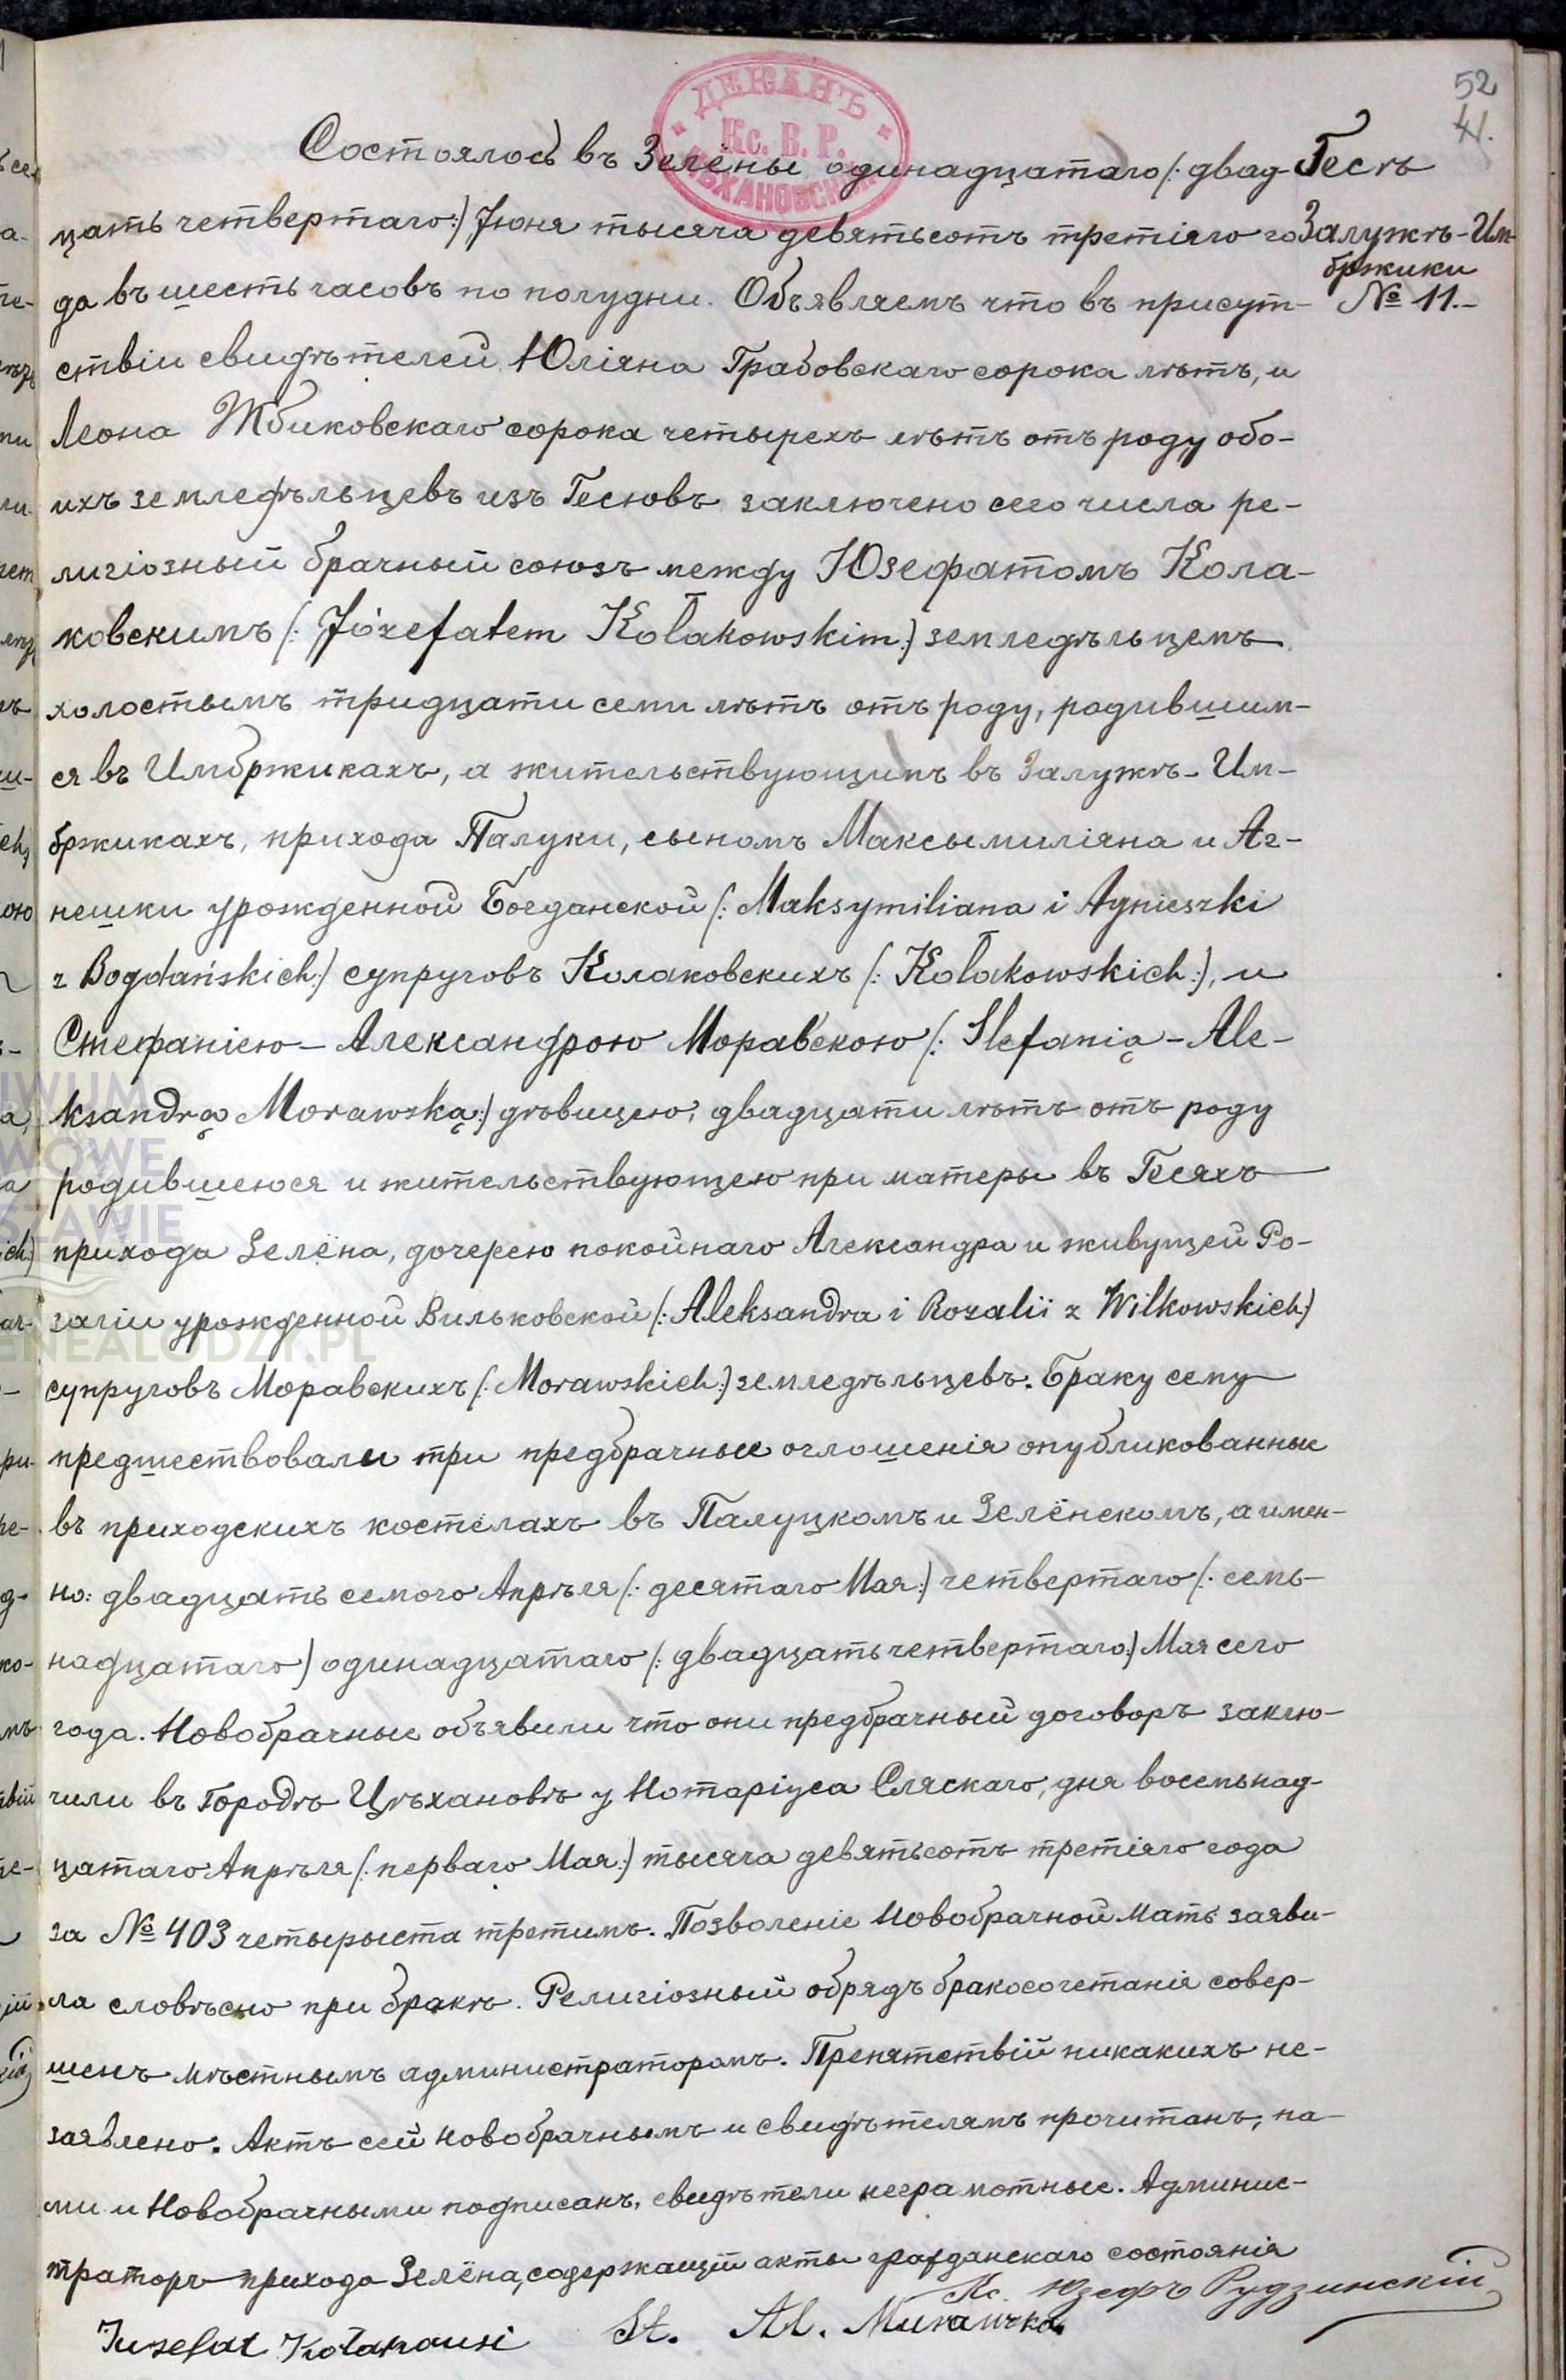 52
41.
ДЕКАНЪ
Кс. В. Р.
ЦѢХАНОВСКІЙ
Состоялось въ Зелёны одинадцатаго /: двад-
цать четвертаго:/ Іюня тысяча девятьсотъ третіяго го
да въ шесть часовъ по полудни. Объявляемъ что въ присут-
ствіи свидѣтелей Юліяна Грабовскаго сорока лѣтъ, и
Леона Жбиковскаго сорока четырехъ лѣтъ отъ роду обо-
ихъ земледѣльцевъ изъ Гесювъ заключено сего числа ре-
лигіозный брачный союзъ между Юзефатомъ Кола-
ковскимъ /: Józefatem Kołakowskim:/ земледѣльцемъ
холостымъ тридцати семи лѣтъ отъ роду, родившим-
ся въ Имбржикахъ, а жительствующимъ въ Залужѣ-Им-
бржикахъ, прихода Палуки, сыномъ Максымиліяна и Аг-
нешки урожденной Богданской /: Maksymiliana i Agnieszki
z Bogdańskich:/ супруговъ Колаковскихъ /: Kołakowskich:/, и
Стефаніею-Александрою Моравскою /: Stefanią-Ale-
ksandrą Morawską:/ дѣвицею, двадцати лѣтъ отъ роду
родившеюся и жительствующею при матеры въ Гесяхъ
прихода Зелёна, дочерею покойнаго Александра и живущей Ро-
заліи урожденной Вильковской /: Aleksandra i Rozalii z Wilkowskich:/
супруговъ Моравскихъ /: Morawskich:/ земледѣльцевъ. Браку сему
предшествовали три предбрачные оглошенія опубликованные
въ приходскихъ костёлахъ въ Палуцкомъ и Зелёнскомъ, а имен-
но: двадцать семого Апрѣля /: десятаго Мая:/ четвертаго /: семь-
надцатаго/ одинадцатаго /: двадцать четвертаго:/ Мая сего
года. Новобрачные объявили что они предбрачный договоръ заклю-
чили въ Городѣ Цѣхановѣ у Нотаріуса Сляскаго, дня восемьнад-
цатаго Апрѣля /: перваго Мая:/ тысяча девятьсотъ третіяго года
за № 403 четырыста третимъ. Позволеніе Новобрачной Мать заяви-
ла словѣсно при бракѣ. Религіозный обрядъ бракосочетанія совер-
шенъ мѣстнымъ администраторомъ. Препятствій никакихъ не-
заявлено. Актъ сей новобрачнымъ и свидѣтелямъ прочитанъ, на-
ми и Новобрачными подписанъ, свидѣтели неграмотные. Админис-
траторъ прихода Зелёна, содержащій акты гражданскаго состоянія
Кс. Юзефъ Рудзинскій
Juzefat Kołakowski St. Al.
Гесѣ
Залужѣ-Им-
бржики
№ 11.-